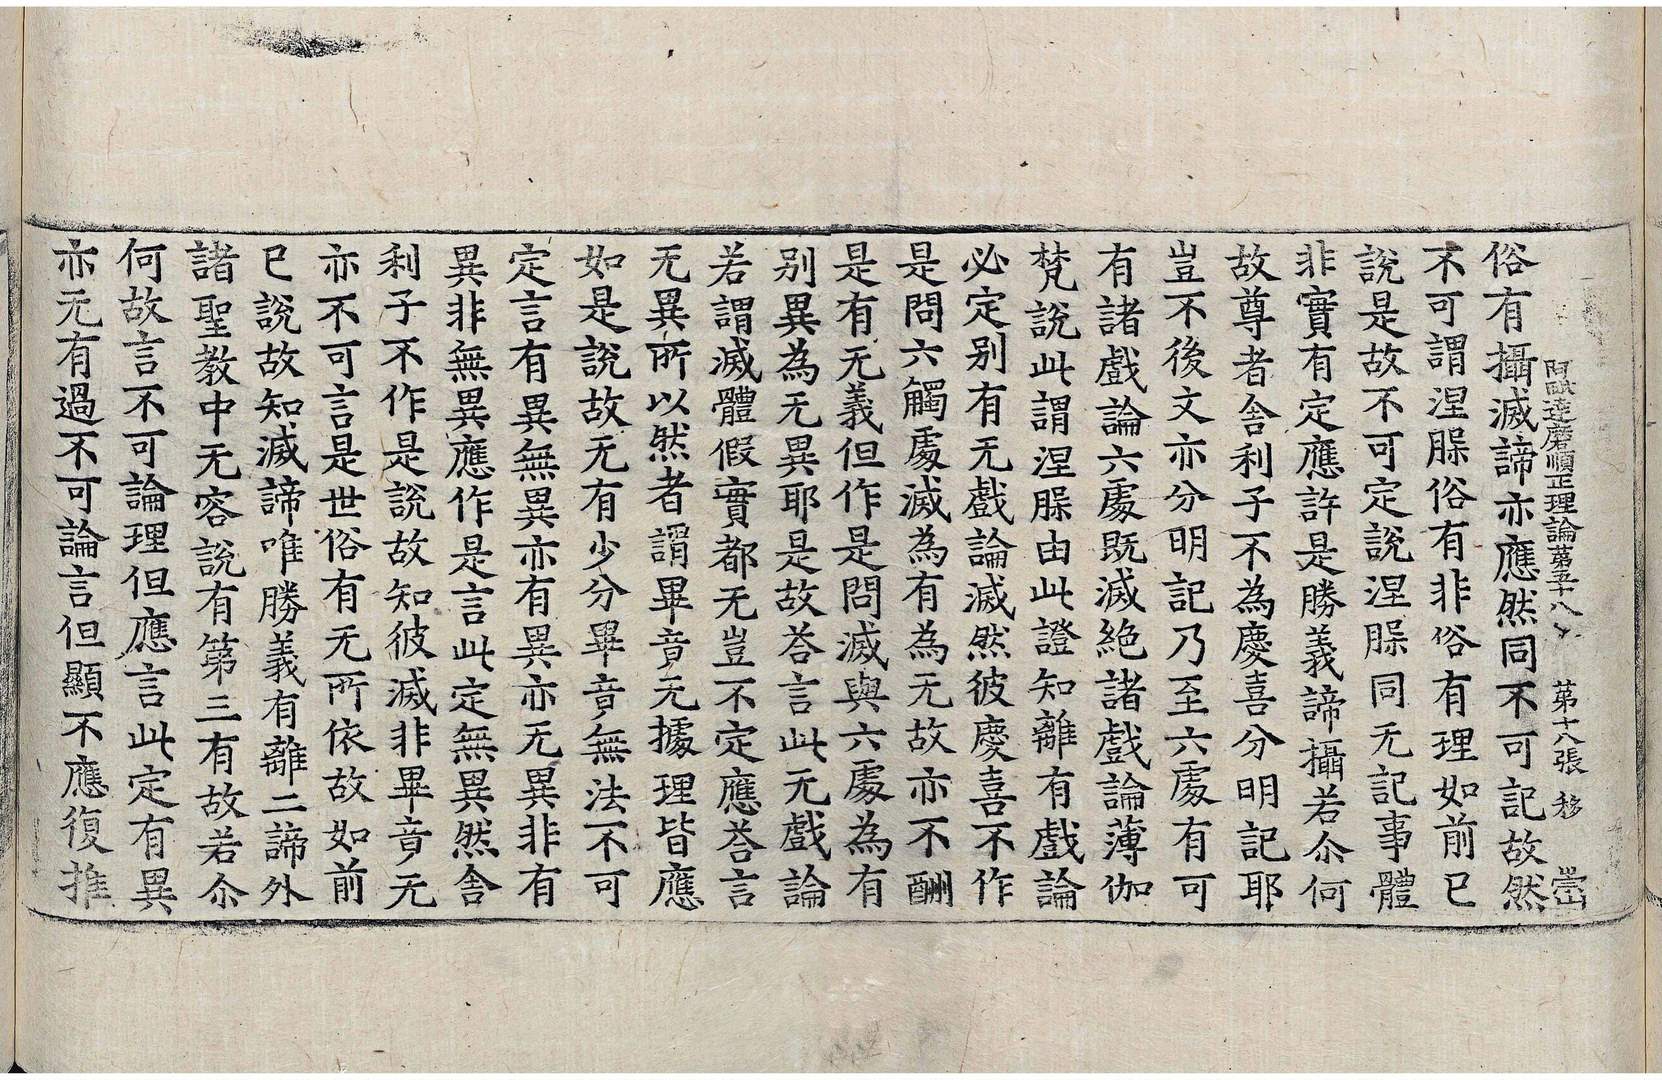 阿毗達磨順正理論第五十八 第十八張 移
俗有攝滅諦亦應然同不可記故然
不可謂涅脲俗有非俗有理如前已
說是故不可定說涅脲同无記事體
非實有定應許是勝義諦攝若尒何
故尊者舍利子不為慶喜分明記耶
豈不後文亦分明記乃至六處有可
有諸戲論六處既滅絕諸戲論薄伽
梵說此謂涅脲由此證知離有戲論
必定別有无戲論滅然彼慶喜不作
是問六觸處滅為有為无故亦不酬
是有无義但作是問滅與六處為有
別異為无異耶是故荅言此无戲論
若謂滅體假實都无豈不定應荅言
无異所以然者謂畢竟无據理皆應
如是說故无有少分畢竟無法不可
定言有異無異亦有異亦无異非有
異非無異應作是言此定無異然舍
利子不作是說故知彼滅非畢竟无
亦不可言是世俗有无所依故如前
已說故知滅諦唯勝義有離二諦外
諸聖教中无容說有第三有故若尒
何故言不可論理但應言此定有異
亦无有過不可論言但顯不應復推